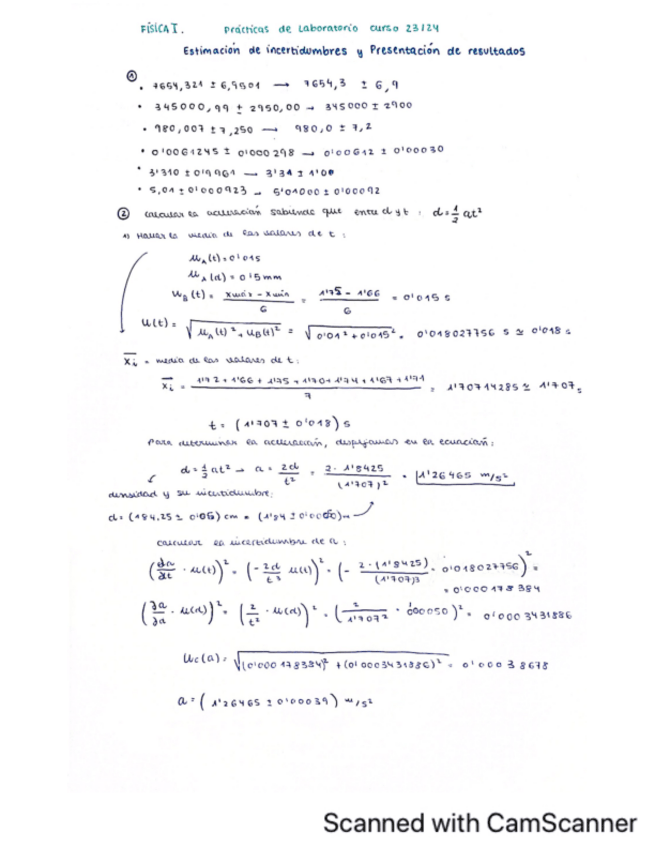 FÍSICA I. Prácticas de Laboratorio curso 23/24
Estimación de incertidumbres y Presentación de resultados
①
• 7654,321 ± 6,9501 → 7654,3 ± 6,9
• 345000,99 ± 2950,00 → 345000 ± 2900
• 980,007 ± 7,250 → 980,0 ± 7,2
• 0'0061245 ± 0'000298 → 0'00612 ± 0'00030
• 3'310 ± 0'9961 → 3'34 ± 1'00
• 5,01 ± 0'000923 → 5'01000 ± 0'00092
② Calcular la aceleración sabiendo que entre d y t : d = 1/2 at²
1) Hallar la media de los valores de t :
u_A(t) = 0'015
u_A(d) = 0'5mm
u_B(t) = xmáx - xmín / 6 = 1'75 - 1'66 / 6 = 0'015 s
u(t) = √(u_A(t)² + u_B(t)²) = √(0'01² + 0'015²) = 0'018027756 s ≃ 0'018 s
x̄i = media de los valores de t :
x̄i = 1'72 + 1'66 + 1'75 + 1'70 + 1'74 + 1'67 + 1'71 / 7 = 1'70714285 ≃ 1'707 s
t = (1'707 ± 0'018) s
Para determinar la aceleración, despejamos en la ecuación :
d = 1/2 at² → a = 2d / t² = 2 · 1'8425 / (1'707)² = 1'26465 m/s²
densidad y su incertidumbre:
d = (184,25 ± 0'05) cm =
calcular la incertidumbre de a :
(∂a/∂t · u(t))² = (-2d/t³ u(t))² = (- 2·(1'8425) / (1'707)3 · 0'018027756)² =
= 0'000178384
(∂a/∂a · u(d))² = (2/t² · u(d))² = (2 / 1'707² · )² = 0'0003431886
Uc(a) = √((0'000178384)² + (0'0003431886)²) = 0'00038678
a = (1'26465 ± 0'00039) m/s²
Scanned with CamScanner